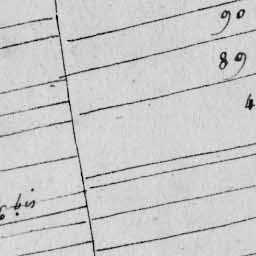 90
89
4
bis